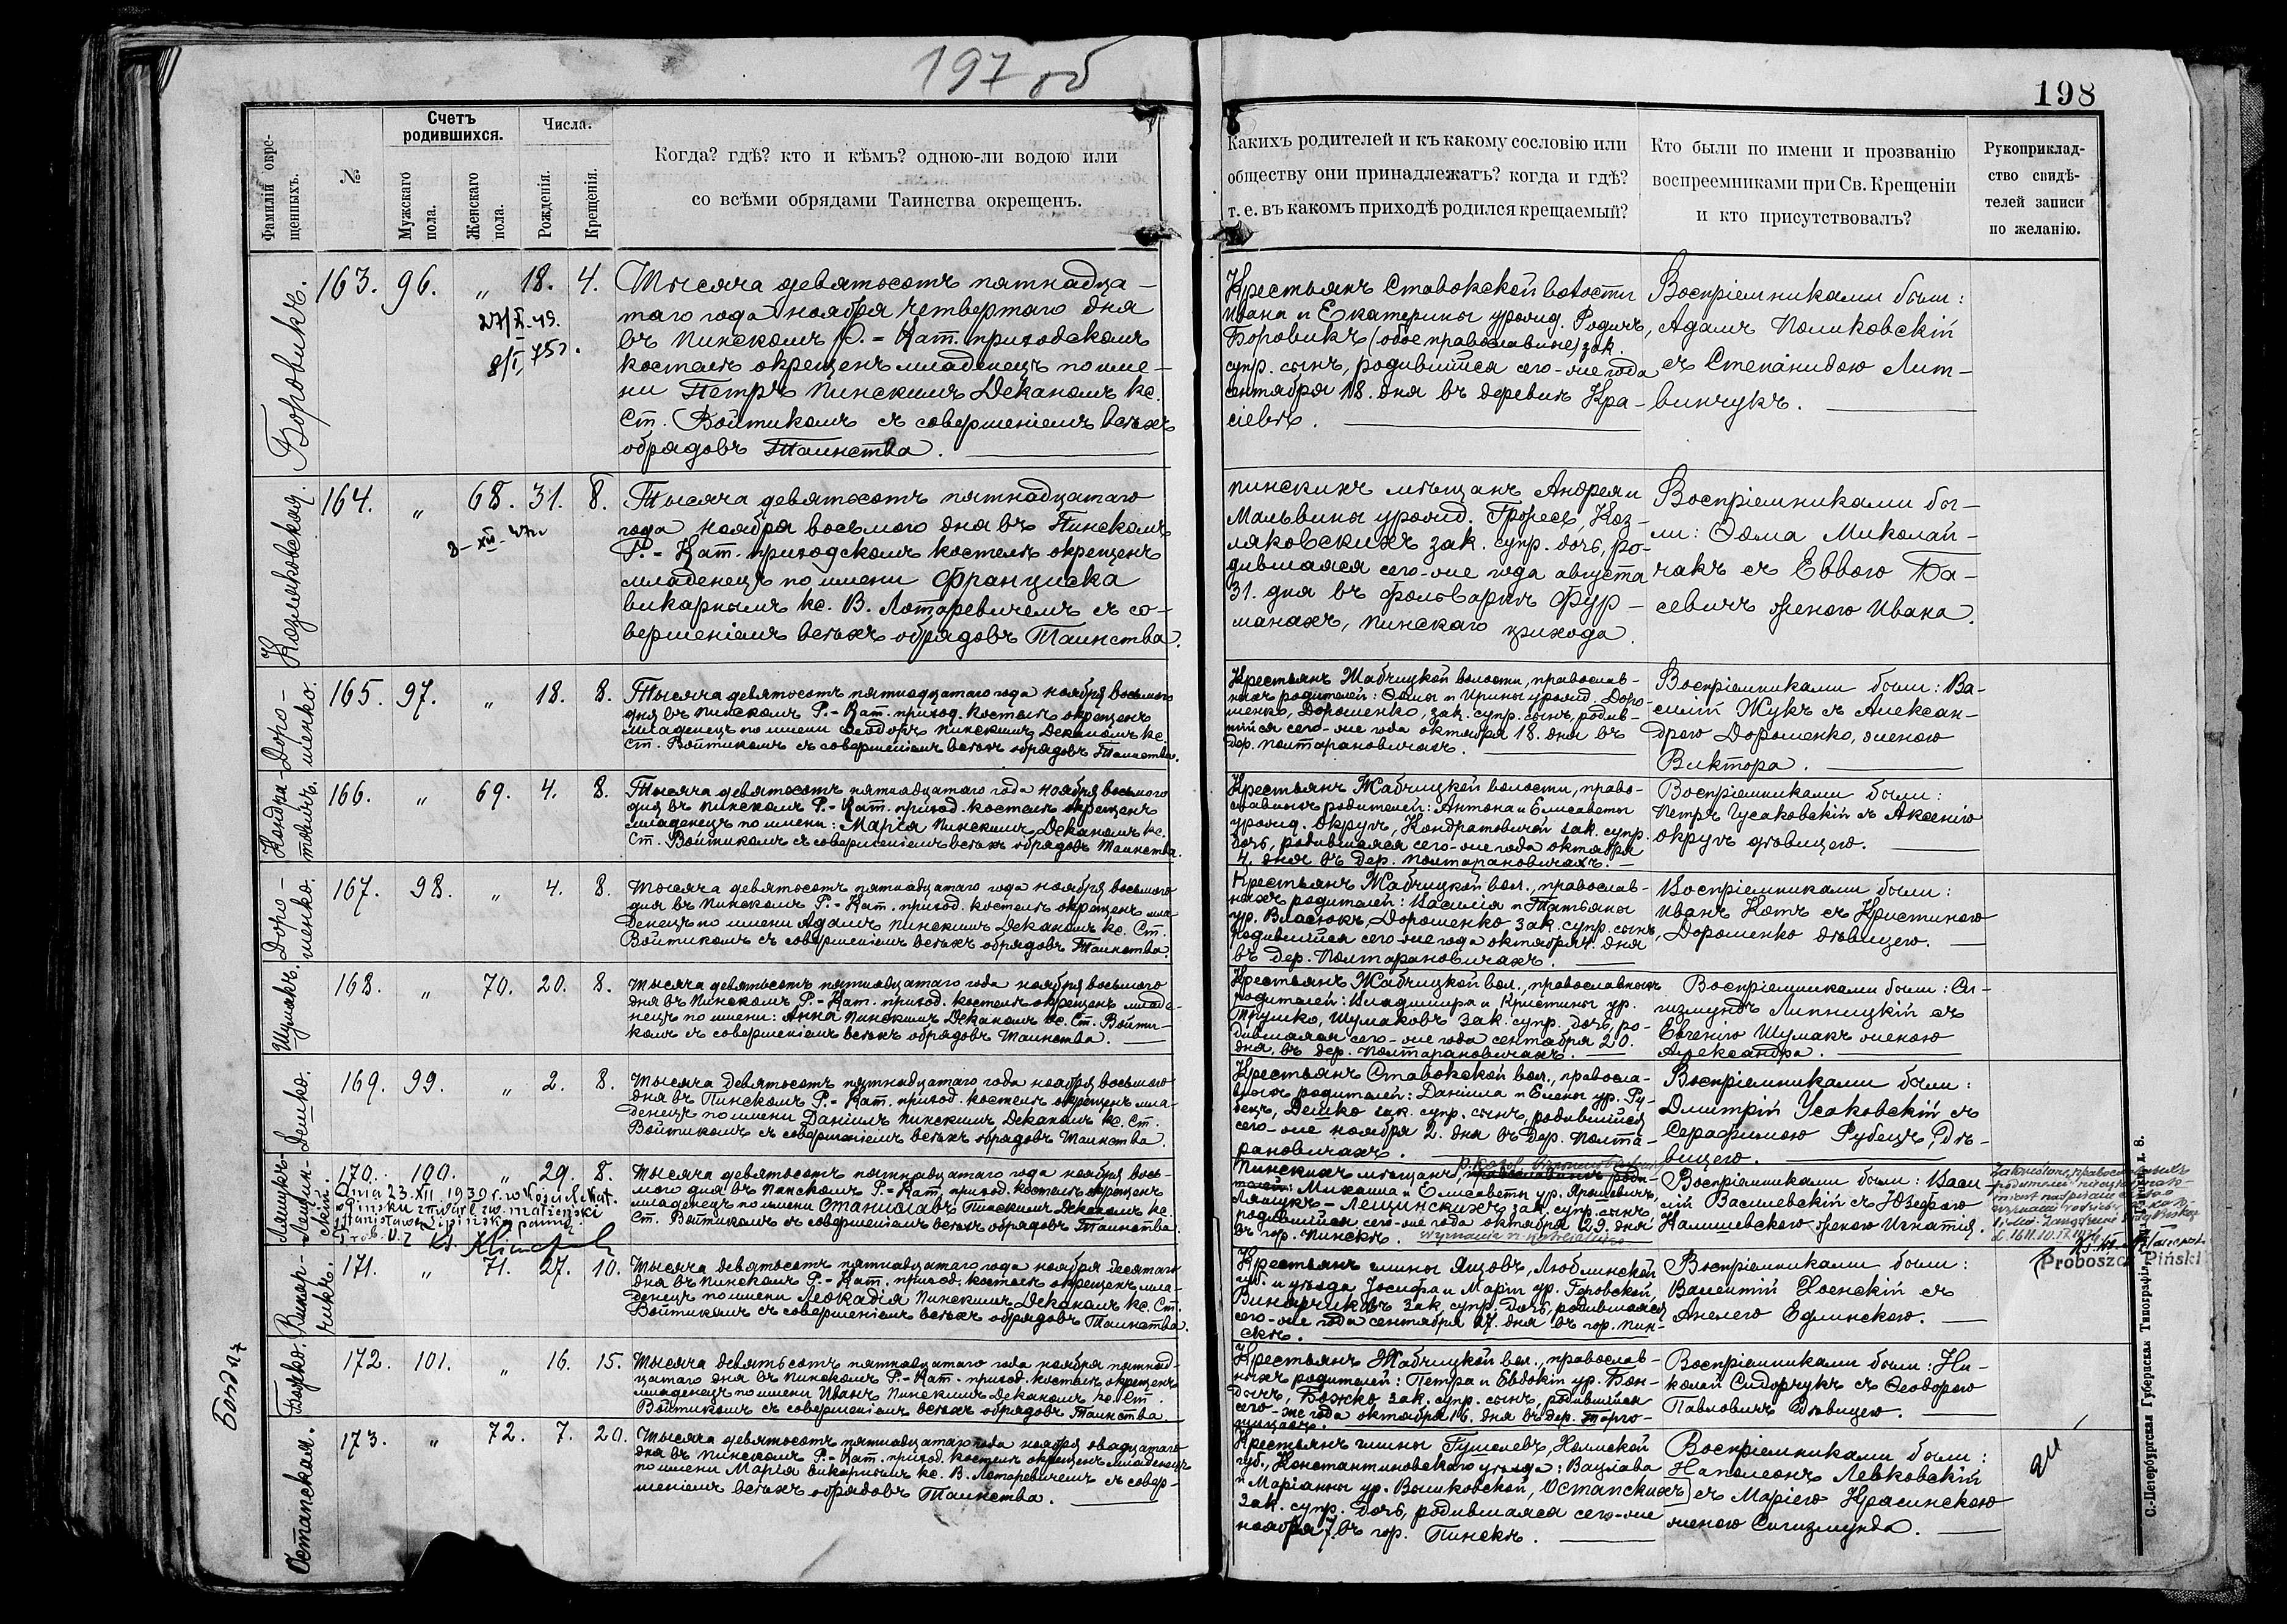 197 об
198
Фамиліи окре-
щенныхъ.
№
Счетъ
родившихся.
Мужскаго
пола.
Женскаго
пола.
Числа.
Рожденія.
Крещенія.
Когда? гдѣ? кто и кѣмъ? одною-ли водою или
со всѣми обрядами Таинства окрещенъ.
Какихъ родителей и къ какому сословію или
обществу они принадлежатъ? когда и гдѣ?
т. е. въ какомъ приходѣ родился крещаемый?
Кто были по имени и прозванію
воспреемниками при Св. Крещеніи
и кто присутствовалъ?
Рукоприклад-
ство свидѣ-
телей записи
по желанію.
Боровикъ.
163. 96. „ 18. 4.
Тысяча девятьсотъ пятнадца-
таго года ноября четвертаго дня
въ Пинскомъ Р.-Кат. приходскомъ
костелѣ окрещенъ младенецъ по име-
ни Петръ Пинскимъ Деканомъ кс.
Ст. Войтикомъ съ совершеніемъ всѣхъ
обрядовъ Таинства.
Крестьянъ Ставокской волости
Ивана и Екатерины урожд. Родичъ,
Боровикъ (обое православные) зак.
супр. сынъ, родившійся сего-же года
сентября 18. дня въ деревнѣ Кра-
сіевѣ.
Воспріемниками были:
Адамъ Поликовскій
съ Степанидою Лит-
винчукъ.
Козляковская.
164. „ 68. 31. 8.
Тысяча девятьсотъ пятнадцатаго
года ноября восьмого дня въ Пинскомъ
Р.-Кат. приходскомъ костелѣ окрещенъ
младенецъ по имени Франциска
викарнымъ кс. В. Лотаревичемъ съ со-
вершеніемъ всѣхъ обрядовъ Таинства.
Пинскихъ мѣщанъ Андрея и
Мальвины урожд. Коз-
ляковскихъ зак. супр. дочь, ро-
дившаяся сего-же года августа
31. дня въ фольваркѣ Фур-
манахъ, Пинскаго прихода.
Воспріемниками бы-
ли: Ѳома Миколай-
чакъ съ Еввою Ба-
севичъ женою Ивана.
Доро-
шенко.
165. 97. „ 18. 8.
Тысяча девятьсотъ пятнадцатаго года ноября восьмого
дня въ Пинскомъ Р.-Кат. приход. костелѣ окрещенъ
младенецъ по имени Ѳеодоръ Пинскимъ Деканомъ кс.
Ст. Войтикомъ съ совершеніемъ всѣхъ обрядовъ Таинства.
Крестьянъ Жабчицкой волости, православ-
ныхъ родителей: Ѳомы и Ирины урожд. Доро-
шенко, Дорошенко, зак. супр. сынъ, родив-
шійся сего-же года октября 18. дня въ
дер. Полтарановичахъ.
Воспріемниками были: Ва-
силій Жукъ съ Алексан-
дрою Дорошенко, женою
Виктора.
Кондра-
товичъ.
166. „ 69. 4. 8.
Тысяча девятьсотъ пятнадцатаго года ноября восьмого
дня въ Пинскомъ Р.-Кат. приход. костелѣ окрещенъ
младенецъ по имени: Марія Пинскимъ Деканомъ кс.
Ст. Войтикомъ съ совершеніемъ всѣхъ обрядовъ Таинства.
Крестьянъ Жабчицкой волости, право-
славныхъ родителей: Антона и Елисаветы
урожд. Окручъ, Кондратовичей зак. супр.
дочь, родившаяся сего-же года октября
4. дня въ дер. Полтарановичахъ.
Воспріемниками были:
Петръ Гусаковскій съ Аксеніею
Окручъ дѣвицею.
Доро-
шенко.
167. 98. „ 4. 8.
Тысяча девятьсотъ пятнадцатаго года ноября восьмого
дня въ Пинскомъ Р.-Кат. приход. костелѣ окрещенъ мла-
денецъ по имени Адамъ Пинскимъ Деканомъ кс. Ст.
Войтикомъ съ совершеніемъ всѣхъ обрядовъ Таинства.
Крестьянъ Жабчицкой вол., православ-
ныхъ родителей: Василія и Татьяны
ур. Власюкъ, Дорошенко зак. супр. сынъ,
родившійся сего-же года октября 4. дня
въ дер. Полтарановичахъ.
Воспріемниками были:
Иванъ Котъ съ Христиною
Дорошенко дѣвицею.
Шумакъ.
168. „ 70. 20. 8.
Тысяча девятьсотъ пятнадцатаго года ноября восьмого
дня въ Пинскомъ Р.-Кат. приход. костелѣ окрещенъ младе-
нецъ по имени: Анна Пинскимъ Деканомъ кс. Ст. Войти-
комъ съ совершеніемъ всѣхъ обрядовъ Таинства.
Крестьянъ Жабчицкой вол., православныхъ
родителей: Владимира и Христины ур.
Трушко, Шумаковъ зак. супр. дочь, ро-
дившаяся сего-же года сентября 20.
дня въ дер. Полтарановичахъ.
Воспріемниками были: Си-
гизмундъ Липницкій съ
Евгеніею Шумакъ женою
Александра.
Дешко.
169. 99. „ 2. 8.
Тысяча девятьсотъ пятнадцатаго года ноября восьмого
дня въ Пинскомъ Р.-Кат. приход. костелѣ окрещенъ мла-
денецъ по имени Даніилъ Пинскимъ Деканомъ кс. Ст.
Войтикомъ съ совершеніемъ всѣхъ обрядовъ Таинства.
Крестьянъ Ставокской вол., правосла-
вныхъ родителей: Даніила и Елены ур. Ру-
бецъ, Дешко зак. супр. сынъ, родившійся
сего-же ноября 2. дня въ дер. Полта-
рановичахъ.
Воспріемниками были:
Дмитрій Усаковскій съ
Серафимою Рубецъ, дѣ-
вицею.
Ляшукъ-
Лещин-
скій.
170. 100. „ 29. 8.
Dnia 23.XII 1939 r. w Kościele Kat.
w Pińsku zawarł zw. małżeński
Stanisławą Lipińską panną.
Тысяча девятьсотъ пятнадцатаго года ноября вось-
мого дня въ Пинскомъ Р.-Кат. приход. костелѣ окрещенъ
младенецъ по имени Станиславъ Пинскимъ Деканомъ кс.
Ст. Войтикомъ съ совершеніемъ всѣхъ обрядовъ Таинства.
Пинскихъ мѣщанъ, православныхъ роди-
телей: Михаила и Елисаветы ур. Ярошевичъ,
Ляшукъ-Лещинскихъ зак. супр. сынъ
родившійся сего-же года октября 29. дня
въ гор. Пинскѣ.
Воспріемниками были: Васи-
лій Василевскій съ Юзефою
Калишевскою женою Игнатія.
Proboszcz Piński
Винар-
чикъ.
171. „ 71. 27. 10.
Тысяча девятьсотъ пятнадцатаго года ноября десятаго
дня въ Пинскомъ Р.-Кат. приход. костелѣ окрещенъ мла-
денецъ по имени Леокадія Пинскимъ Деканомъ кс. Ст.
Войтикомъ съ совершеніемъ всѣхъ обрядовъ Таинства.
Крестьянъ гмины Ящовъ, Люблинской
губ. и уѣзда Іосифа и Маріи ур. Геровской,
Винарчиковъ зак. супр. дочь, родившаяся
сего-же года сентября 27. дня въ гор. Пин-
скѣ.
Воспріемниками были:
Валентій Хоенскій съ
Анелею Едлинскою.
Божко.
Бондач
172. 101. „ 16. 15.
Тысяча девятьсотъ пятнадцатаго года ноября пятнад-
цатаго дня въ Пинскомъ Р.-Кат. приход. костелѣ окрещенъ
младенецъ по имени Иванъ Пинскимъ Деканомъ кс. Ст.
Войтикомъ съ совершеніемъ всѣхъ обрядовъ Таинства.
Крестьянъ Жабчицкой вол., православ-
ныхъ родителей: Петра и Евдокіи ур. Бон-
дычъ, Божко зак. супр. сынъ, родившійся
сего-же года октября 16. дня въ дер. Торго-
щицахъ.
Воспріемниками были: Ни-
колай Сидорчукъ съ Ѳеодорою
Павловичъ дѣвицею.
Остапская.
173. „ 72. 7. 20.
Тысяча девятьсотъ пятнадцатаго года ноября двадцатаго
дня въ Пинскомъ Р.-Кат. приход. костелѣ окрещенъ младенецъ
по имени Марія викарнымъ кс. В. Лотаревичемъ съ совер-
шеніемъ всѣхъ обрядовъ Таинства.
Крестьянъ гмины Гушлевъ, Холмской
губ., Константиновскаго уѣзда: Вацлава
и Маріанны ур. Вышковской, Остапскихъ
зак. супр. дочь, родившаяся сего-же
ноября 7. въ гор. Пинскѣ.
Воспріемниками были:
Наполеонъ Левковскій
съ Маріею Красинскою
женою Сигизмунда.
С.-Петербургская Губернская Типографія,